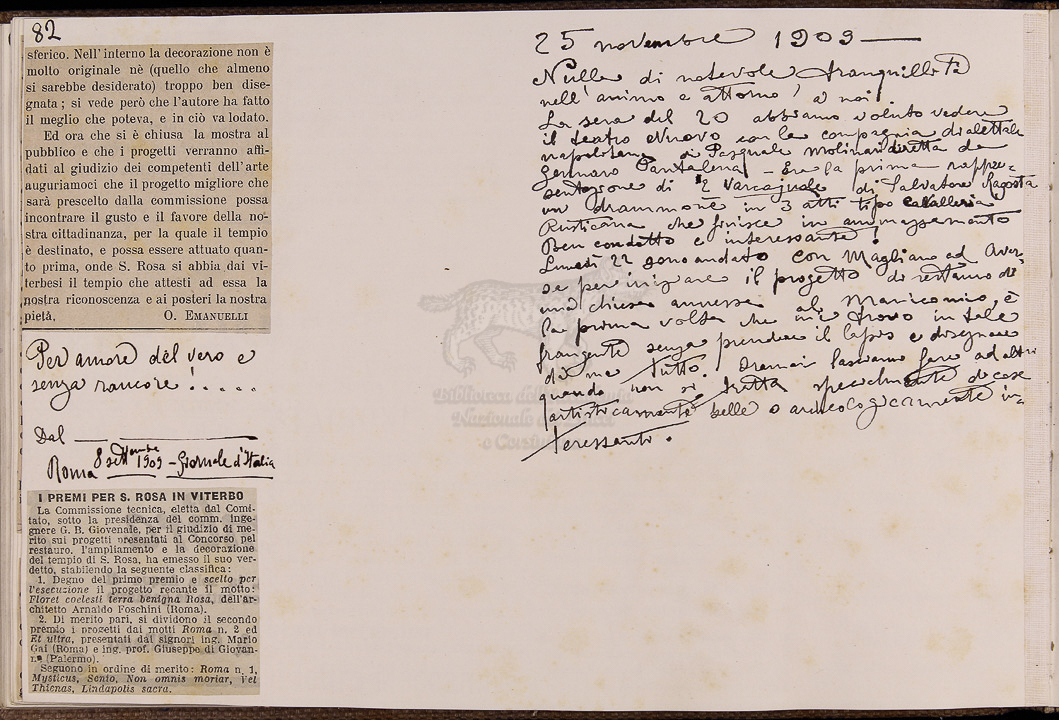 82
sferico. Nell' interno la decorazione non è
molto originale nè (quello che almeno
si sarebbe desiderato) troppo ben dise-
gnata; si vede però che l'autore ha fatto
il meglio che poteva, e in ciò va lodato.
Ed ora che si è chiusa la mostra al
pubblico e che i progetti verranno affi-
dati al giudizio dei competenti dell'arte
auguriamoci che il progetto migliore che
sarà prescelto dalla commissione possa
incontrare il gusto e il favore della no-
stra cittadinanza, per la quale il tempio
è destinato, e possa essere attuato quan-
to prima, onde S. Rosa si abbia dai vi-
terbesi il tempio che attesti ad essa la
nostra riconoscenza e ai posteri la nostra
pietà. O. EMANUELLI
Per amore del vero e
senza rancore!.....
Dal
Roma 8 settembre 1909 - Giornale d'Italia
I PREMI PER S. ROSA IN VITERBO
La Commissione tecnica, eletta dal Comi-
tato, sotto la presidenza del comm. inge-
gnere G. B. Giovenale, per il giudizio di me-
rito sui progetti presentati al Concorso pel
restauro, l'ampliamento e la decorazione
del tempio di S. Rosa, ha emesso il suo ver-
detto, stabilendo la seguente classifica:
1. Degno del primo premio e scelto per
l'esecuzione il progetto recante il motto:
Floret coelesti terra benigna Rosa, dell'ar-
chitetto Arnaldo Foschini (Roma).
2. Di merito pari, si dividono il secondo
premio i progetti dai motti Roma n. 2 ed
Et ultra, presentati dai signori ing. Mario
Gai (Roma) e ing. prof. Giuseppe di Giovan-
ni (Palermo).
Seguono in ordine di merito: Roma n. 1,
Mysticus, Senio, Non omnis moriar, Vel
Thienas, Lindapolis sacra.
25 novembre 1909
Nulla di notevole tranquillità
nell'animo e attorno a noi
La sera del 20 abbiamo voluto vedere
il teatro Nuovo con la compagnia dialettale
napoletana di Pasquale Molinari diretta da
Gennaro Pantalena - Era la prima rappre-
sentazione di 'E Varcajuole di Salvatore Ragosta
un drammone in 3 atti tipo Cavalleria
Rusticana che finisce in ammazzamento
Ben condotto e interessante!
Lunedì 22 sono andato con Magliano ad Aver-
sa per iniziare il progetto di restauro di
una chiesa annessa al Manicomio, è
la prima volta che mi trovo in tale
frangente senza prendere il lapis e disegnare
da me tutto. Oramai lasciamo fare ad altri
quando non si tratta specialmente di cose
artisticamente belle o archeologicamente in-
teressanti.
Biblioteca
Nazionale